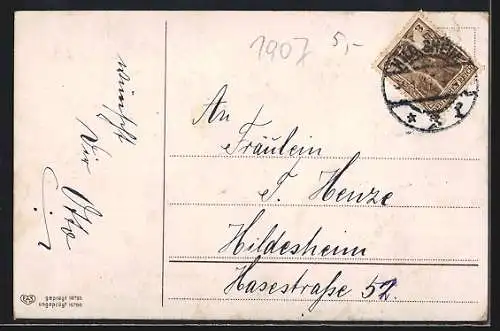 1907 5,-
wünscht
Dir Otto
An
Fräulein
F. Henze
Hildesheim
Hasestraße 52.
EAS
geprägt 16785
ungeprägt 16786